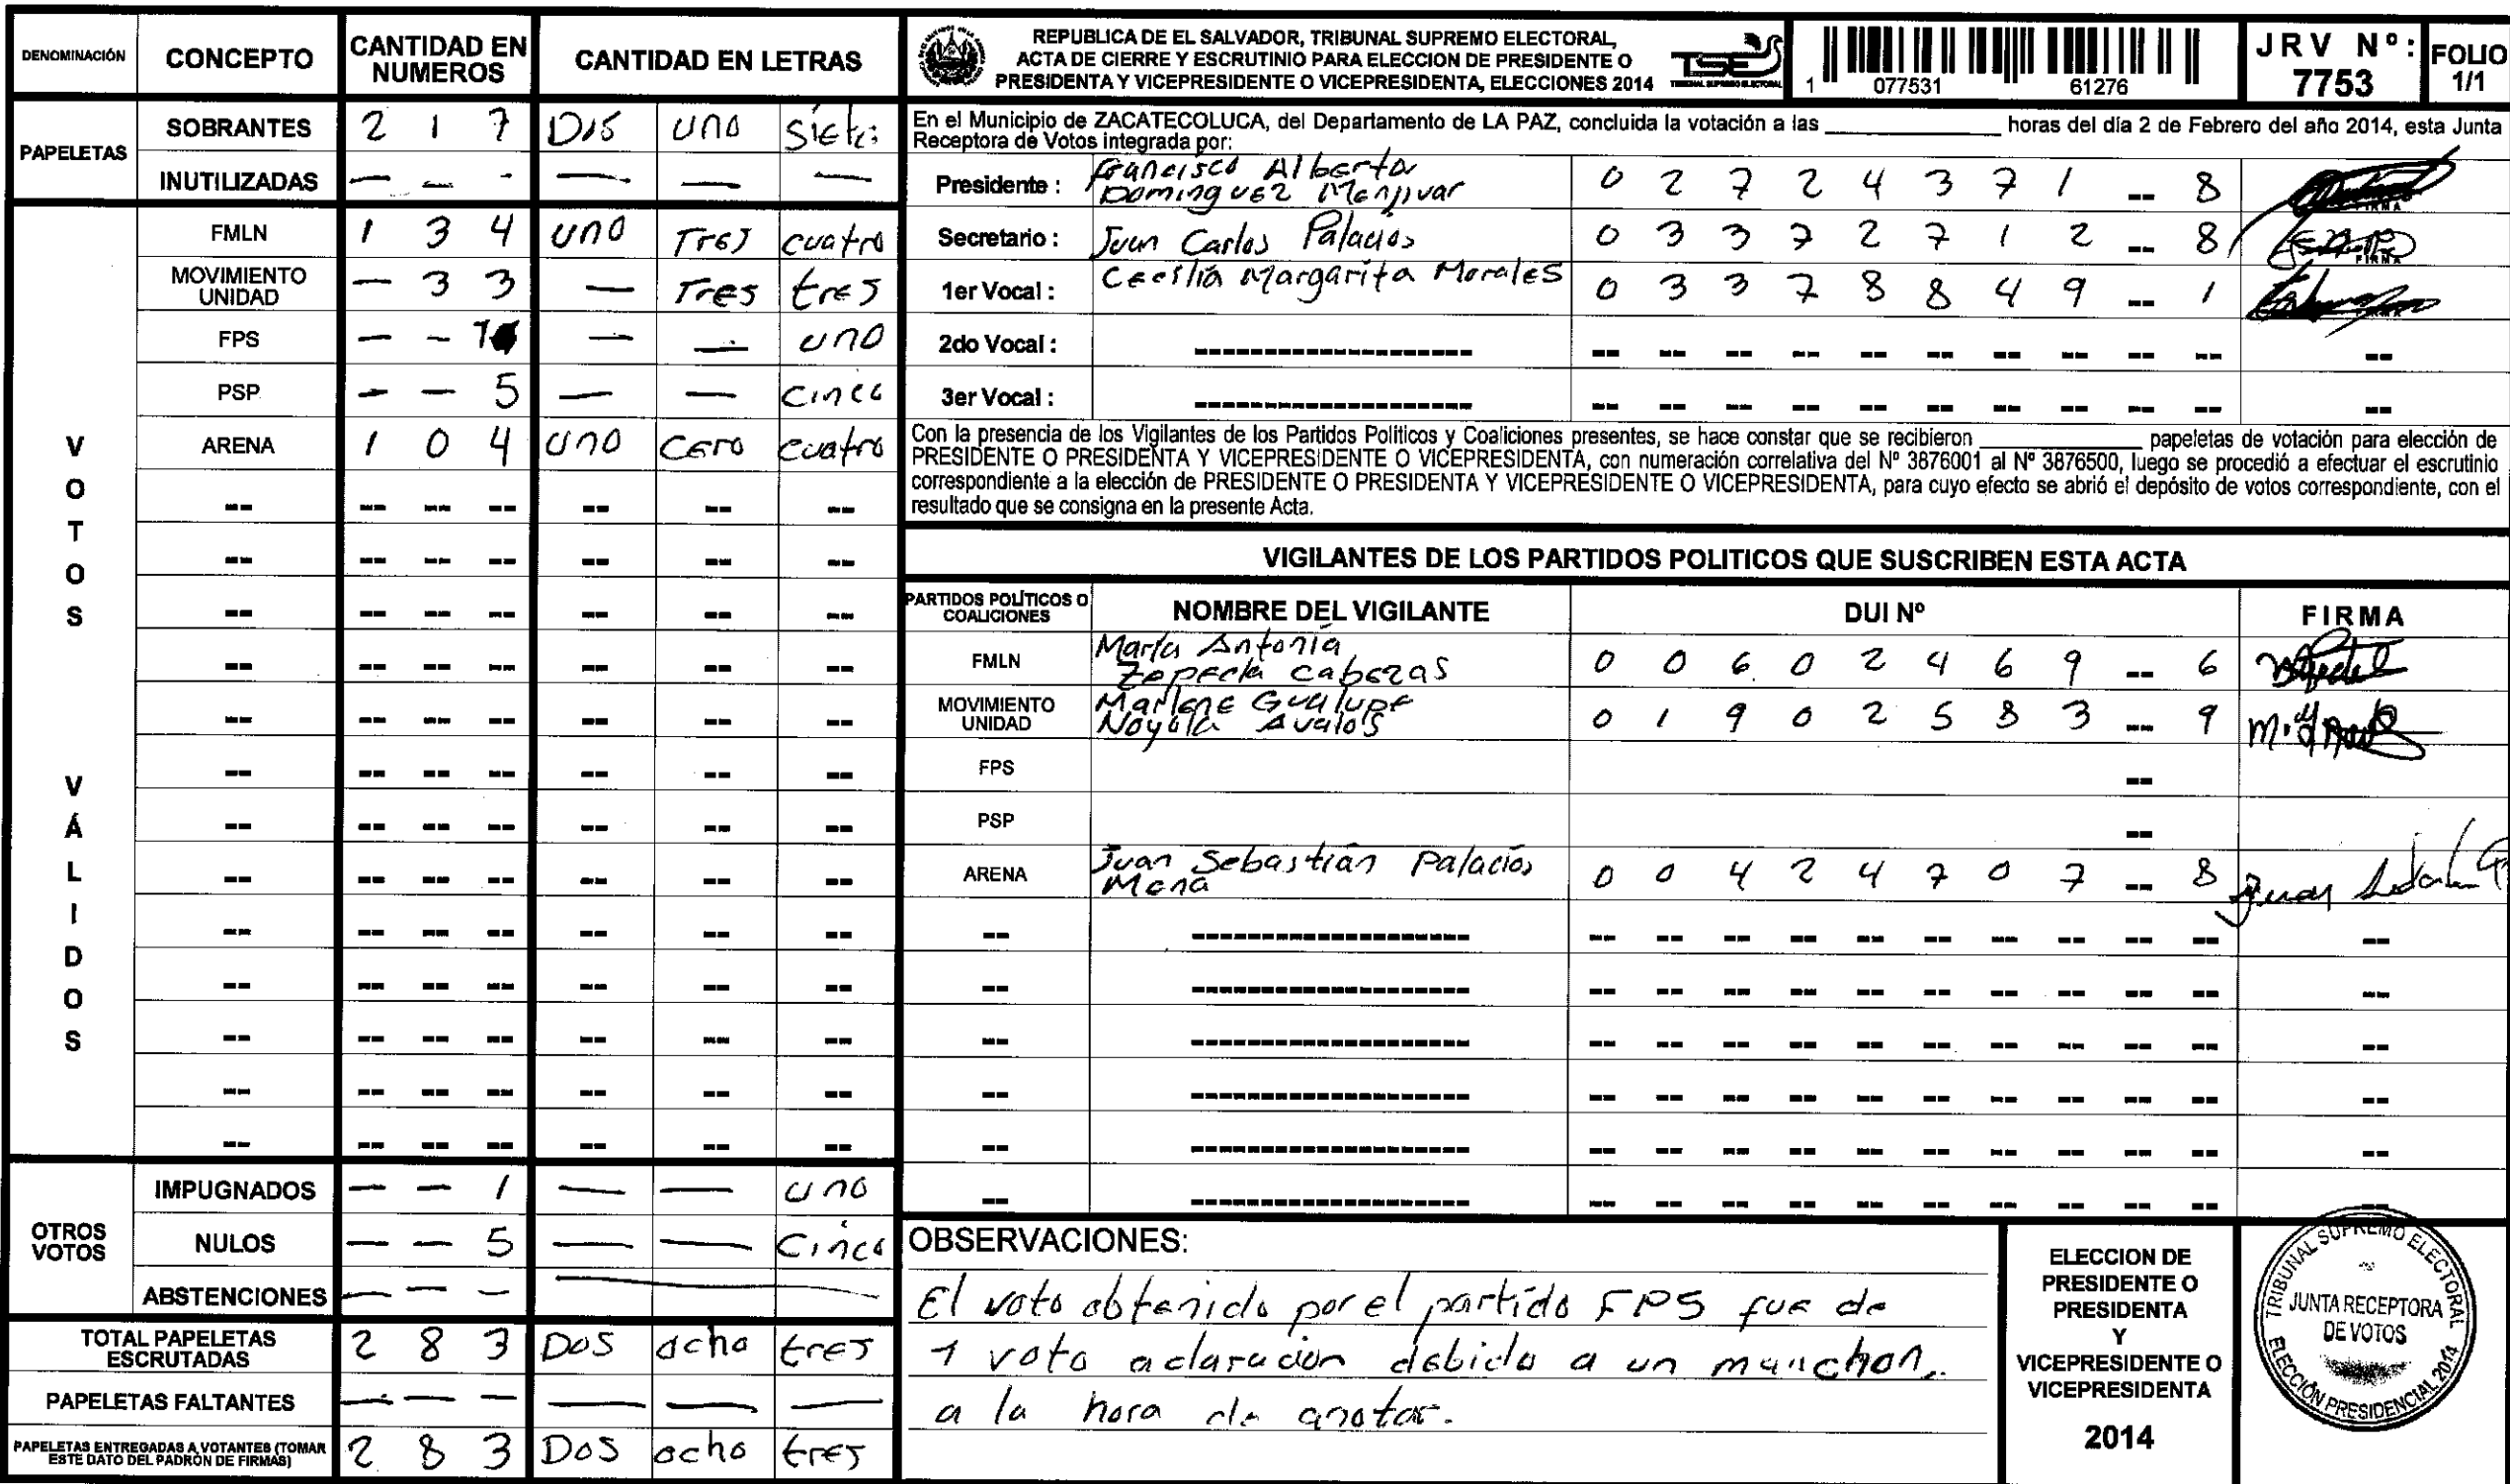 DENOMINACIÓN CONCEPTO CANTIDAD EN NUMEROS CANTIDAD EN LETRAS
PAPELETAS
SOBRANTES 2 1 7 Dos uno Siete
INUTILIZADAS — — - — — —
VOTOS VÁLIDOS
FMLN 1 3 4 uno Tres cuatro
MOVIMIENTO UNIDAD — 3 3 — Tres tres
FPS — — 1 — — uno
PSP — — 5 — — Cinco
ARENA 1 0 4 uno Cero cuatro
OTROS VOTOS
IMPUGNADOS — — 1 — — uno
NULOS — — 5 — — Cinco
ABSTENCIONES — — —
TOTAL PAPELETAS ESCRUTADAS 2 8 3 Dos ocho tres
PAPELETAS FALTANTES — — — — — —
PAPELETAS ENTREGADAS A VOTANTES (TOMAR ESTE DATO DEL PADRÓN DE FIRMAS) 2 8 3 Dos ocho tres
REPUBLICA DE EL SALVADOR, TRIBUNAL SUPREMO ELECTORAL,
ACTA DE CIERRE Y ESCRUTINIO PARA ELECCION DE PRESIDENTE O
PRESIDENTA Y VICEPRESIDENTE O VICEPRESIDENTA, ELECCIONES 2014
TSE
TRIBUNAL SUPREMO ELECTORAL
1 077531 61276
JRV Nº: 7753
FOLIO 1/1
En el Municipio de ZACATECOLUCA, del Departamento de LA PAZ, concluida la votación a las ________ horas del día 2 de Febrero del año 2014, esta Junta
Receptora de Votos integrada por:
Presidente : Francisco Alberto Dominguez Menjivar 0 2 7 2 4 3 7 1 -- 8 FIRMA
Secretario : Juan Carlos Palacios 0 3 3 7 2 7 1 2 -- 8 FIRMA
1er Vocal : Cecilia Margarita Morales 0 3 3 7 8 8 4 9 -- 1
2do Vocal :
3er Vocal :
Con la presencia de los Vigilantes de los Partidos Politicos y Coaliciones presentes, se hace constar que se recibieron ________ papeletas de votación para elección de
PRESIDENTE O PRESIDENTA Y VICEPRESIDENTE O VICEPRESIDENTA, con numeración correlativa del Nº 3876001 al Nº 3876500, luego se procedió a efectuar el escrutinio
correspondiente a la elección de PRESIDENTE O PRESIDENTA Y VICEPRESIDENTE O VICEPRESIDENTA, para cuyo efecto se abrió el depósito de votos correspondiente, con el
resultado que se consigna en la presente Acta.
VIGILANTES DE LOS PARTIDOS POLITICOS QUE SUSCRIBEN ESTA ACTA
PARTIDOS POLÍTICOS O COALICIONES NOMBRE DEL VIGILANTE DUI Nº FIRMA
FMLN María Antonia Zepeda Cabezas 0 0 6 0 2 4 6 9 -- 6
MOVIMIENTO UNIDAD Marlene Gualupe Noyola Avalos 0 1 9 0 2 5 8 3 -- 9
FPS --
PSP --
ARENA Juan Sebastián Palacios Mena 0 0 4 2 4 7 0 7 -- 8 Juan
OBSERVACIONES:
El voto obtenido por el partido FPS fue de
1 voto aclaracion debido a un manchon
a la hora de anotar.
ELECCION DE
PRESIDENTE O
PRESIDENTA
Y
VICEPRESIDENTE O
VICEPRESIDENTA
2014
TRIBUNAL SUPREMO ELECTORAL
JUNTA RECEPTORA
DE VOTOS
ELECCIÓN PRESIDENCIAL 2014